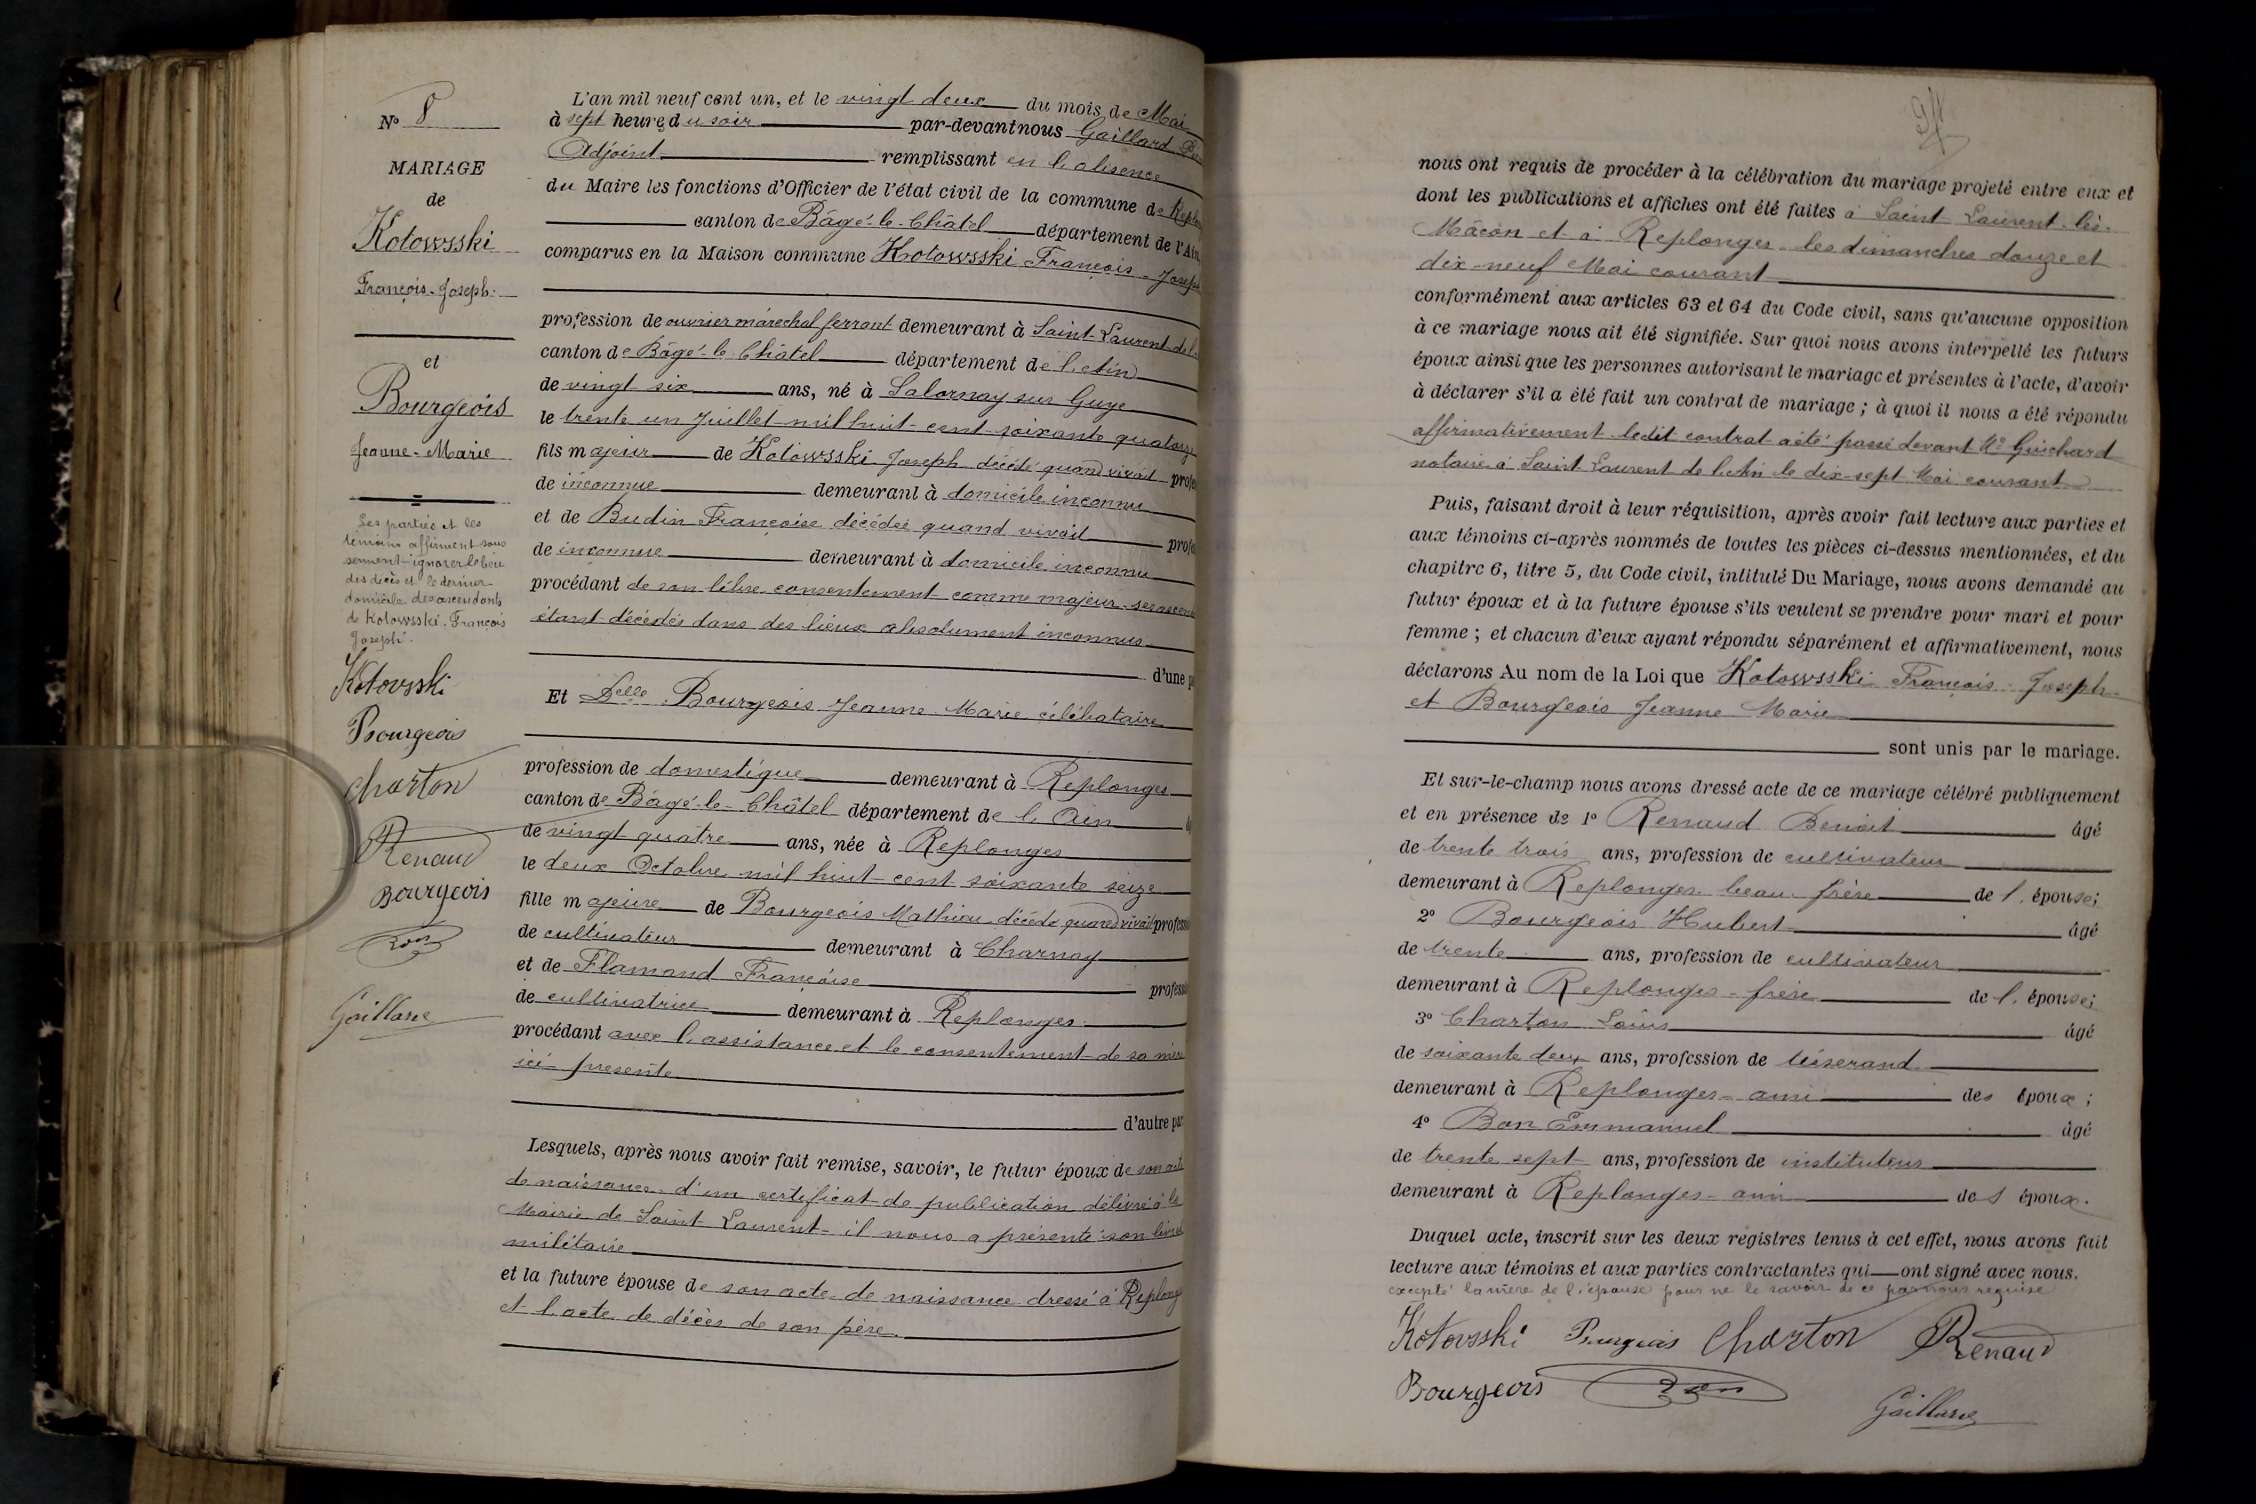 Nº 8
MARIAGE
de
Kotowsski
François-Joseph
et
Bourgeois
Jeanne-Marie
Les parties et les
témoins affirment sous
serment ignorer le lieu
des décès et le dernier
domicile des ascendants
de Kotowsski François
Joseph.
Kotovsski
Bourgeois
Charton
Renaud
Bourgeois
Bon
Gaillard
L'an mil neuf cent un, et le vingt deux du mois de Mai
à sept heures du soir par-devant nous Gaillard
Adjoint remplissant en l'absence
du Maire les fonctions d'Officier de l'état civil de la commune de
canton de Bâgé-le-Châtel département de l'Ain
comparus en la Maison commune Kotowsski François-Joseph
profession de ouvrier maréchal ferrant demeurant à Saint Laurent de l
canton de Bâgé-le-Châtel département de l'Ain
de vingt six ans, né à Salornay sur Guye
le trente un Juillet mil huit cent soixante quatorze
fils majeur de Kotowsski Joseph décédé quand vivait profes
de inconnue demeurant à domicile inconnu
et de Budin Françoise décédée quand vivait profes
de inconnue demeurant à domicile inconnu
procédant de son libre consentement comme majeur ses ascen
étant décédés dans des lieux absolument inconnus
d'une p
Et Delle Bourgeois Jeanne Marie célibataire
profession de domestique demeurant à Replonges
canton de Bâgé-le-Châtel département de l'Ain
de vingt quatre ans, née à Replonges
le deux Octobre mil huit cent soixante seize
fille majeure de Bourgeois Mathieu décédé quand vivait profession
de cultivateur demeurant à Charnay
et de Flamand Françoise profession
de cultivatrice demeurant à Replonges
procédant avec l'assistance et le consentement de sa mère
ici présente
d'autre par
Lesquels, après nous avoir fait remise, savoir, le futur époux de son acte
de naissance d'un certificat de publication délivré à la
Mairie de Saint Laurent - il nous a présenté son livret
militaire
et la future épouse de son acte de naissance dressé à Replong
et l'acte de décès de son père
94
nous ont requis de procéder à la célébration du mariage projeté entre eux et
dont les publications et affiches ont été faites à Saint Laurent-lès-
Mâcon et à Replonges les dimanches douze et
dix-neuf Mai courant
conformément aux articles 63 et 64 du Code civil, sans qu'aucune opposition
à ce mariage nous ait été signifiée. Sur quoi nous avons interpellé les futurs
époux ainsi que les personnes autorisant le mariage et présentes à l'acte, d'avoir
à déclarer s'il a été fait un contrat de mariage ; à quoi il nous a été répondu
affirmativement ledit contrat a été passé devant Me Guichard
notaire à Saint Laurent de l'Ain le dix-sept Mai courant
Puis, faisant droit à leur réquisition, après avoir fait lecture aux parties et
aux témoins ci-après nommés de toutes les pièces ci-dessus mentionnées, et du
chapitre 6, titre 5, du Code civil, intitulé Du Mariage, nous avons demandé au
futur époux et à la future épouse s'ils veulent se prendre pour mari et pour
femme ; et chacun d'eux ayant répondu séparément et affirmativement, nous
déclarons Au nom de la Loi que Kotowsski François-Joseph
et Bourgeois Jeanne Marie
sont unis par le mariage.
Et sur-le-champ nous avons dressé acte de ce mariage célébré publiquement
et en présence de 1º Renaud Benoit âgé
de trente trois ans, profession de cultivateur
demeurant à Replonges beau-frère de l'épouse;
2º Bourgeois Hubert âgé
de trente ans, profession de cultivateur
demeurant à Replonges frère de l'épouse;
3º Charton Louis âgé
de soixante deux ans, profession de tisserand
demeurant à Replonges ami des époux ;
4º Bon Emmanuel âgé
de trente sept ans, profession de instituteur
demeurant à Replonges ami des époux.
Duquel acte, inscrit sur les deux registres tenus à cet effet, nous avons fait
lecture aux témoins et aux parties contractantes qui ont signé avec nous.
excepté la mère de l'épouse pour ne le savoir de ce par nous requise
Kotovsski Bourgeois Charton Renaud
Bourgeois Bon
Gaillard